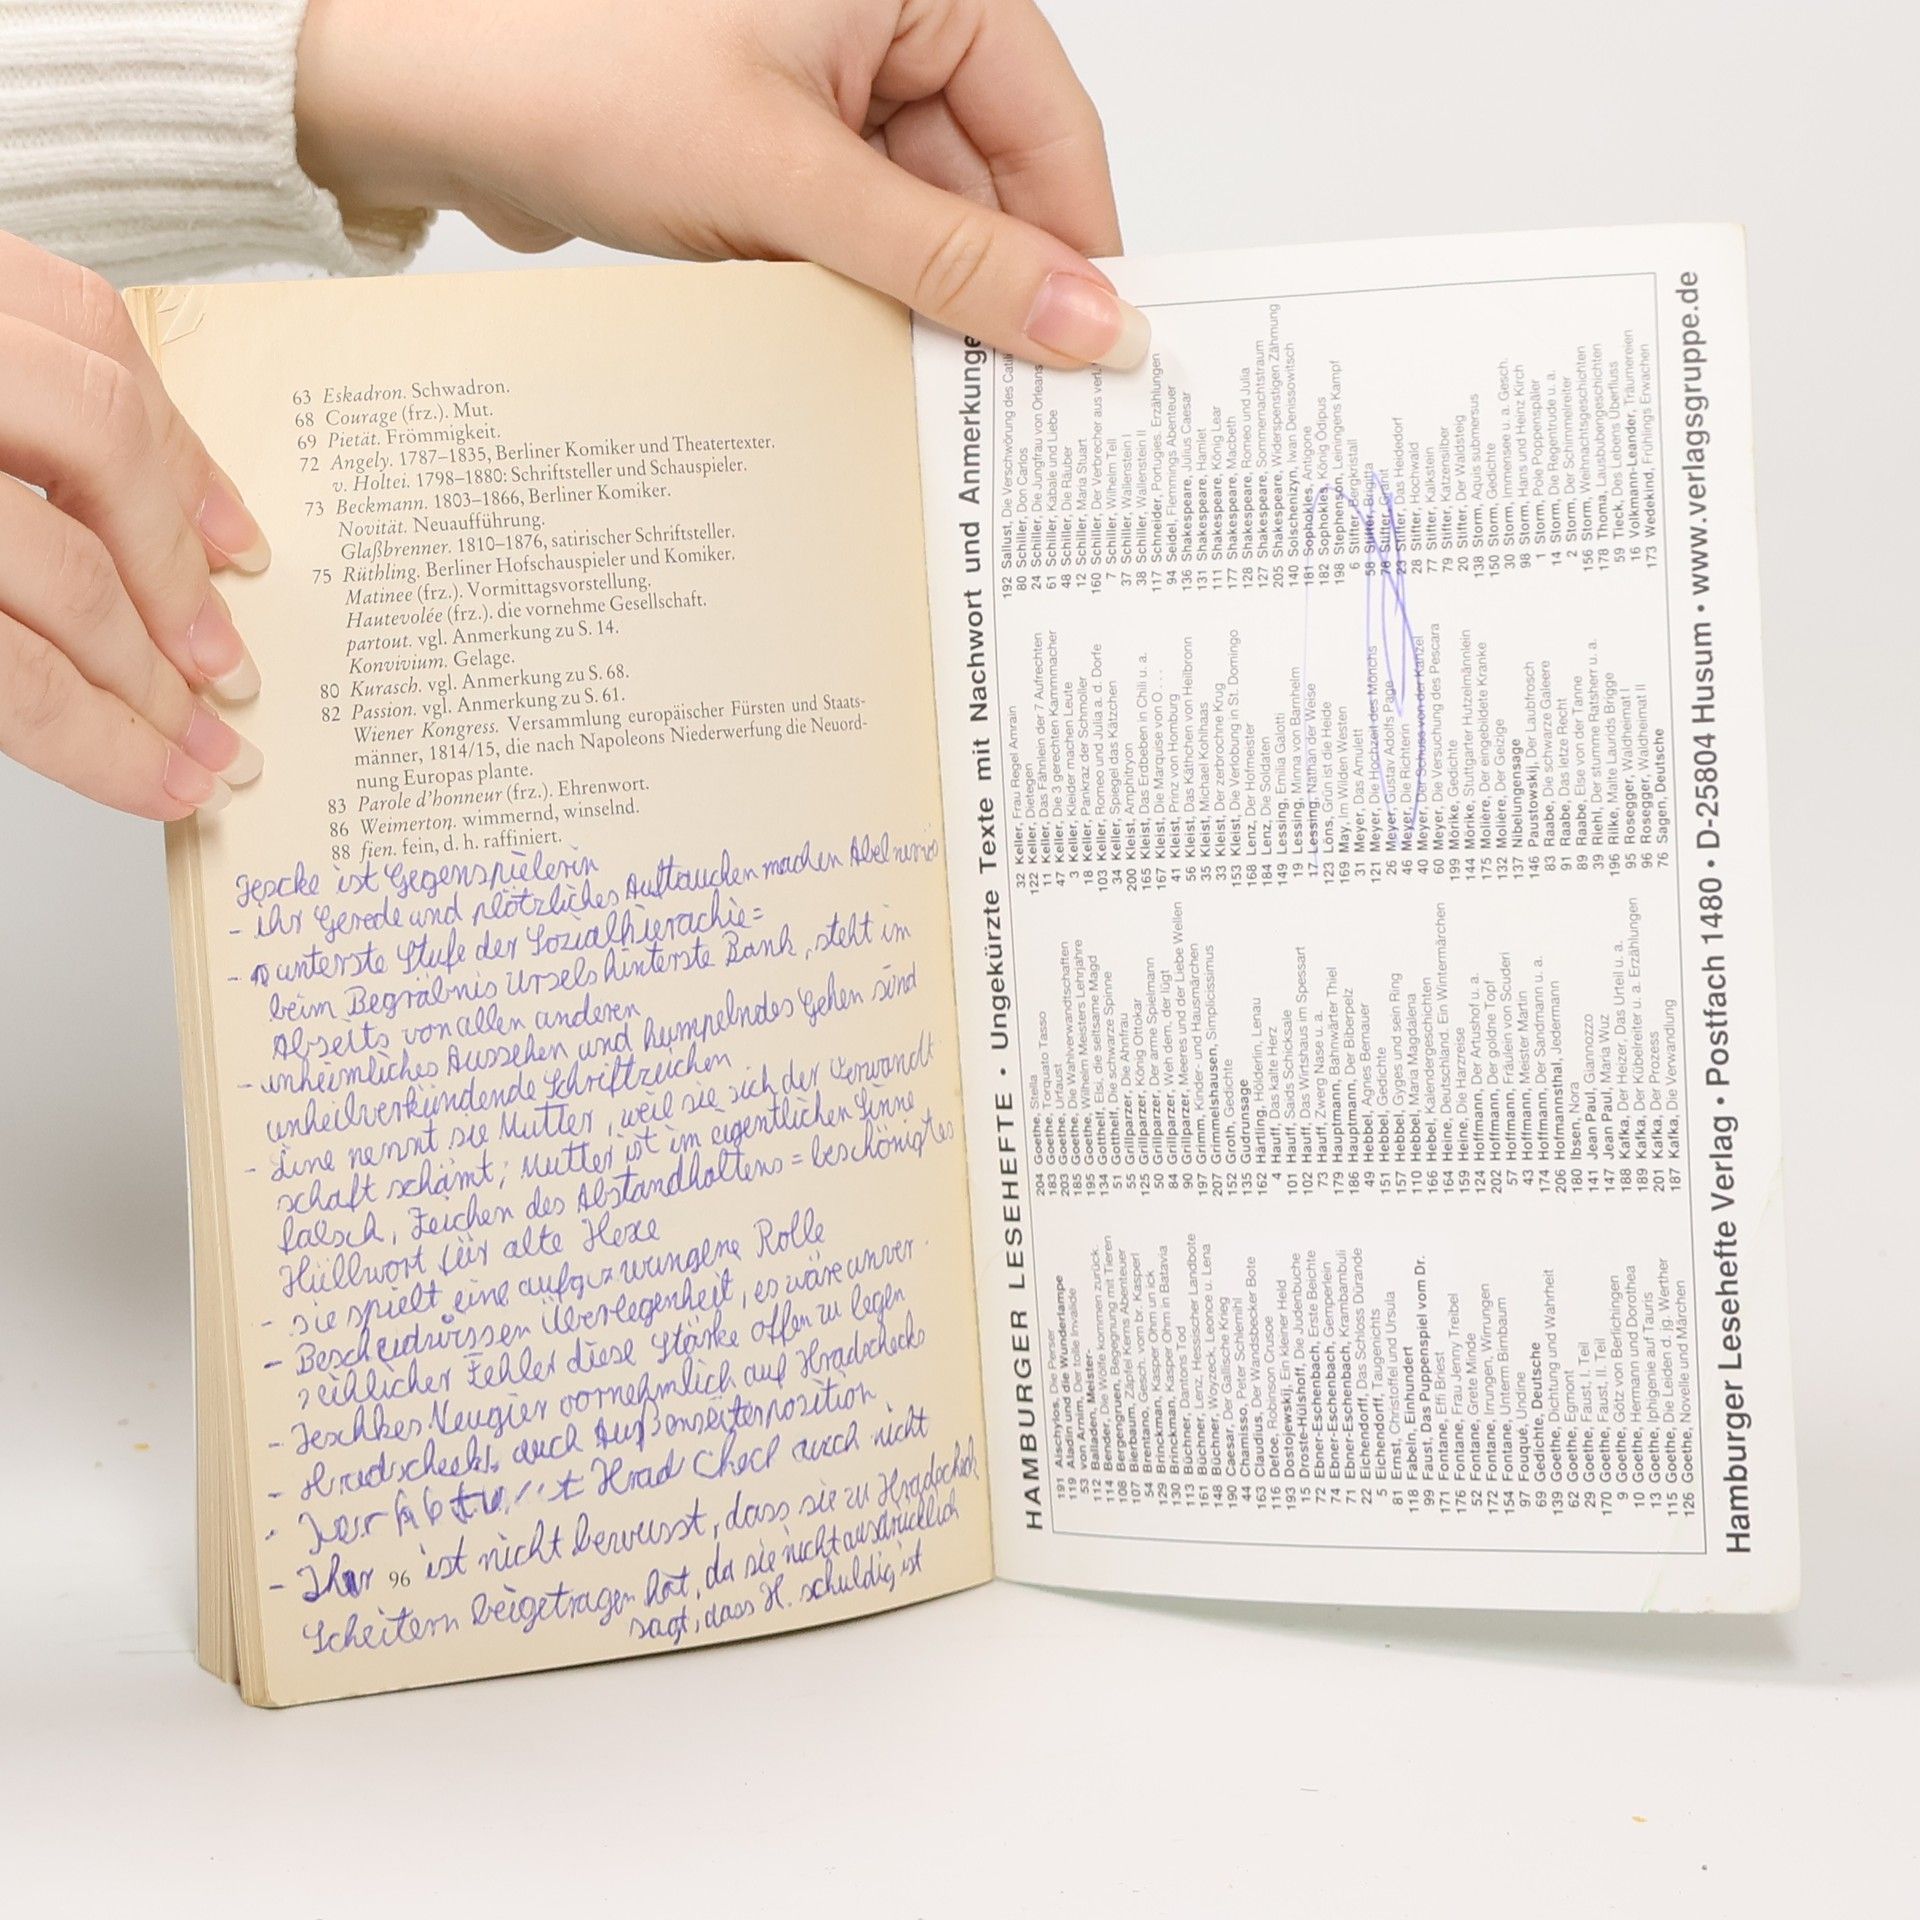 63 Eskadron. Schwadron.
68 Courage (frz.). Mut.
69 Pietät. Frömmigkeit.
72 Angely. 1787–1835, Berliner Komiker und Theatertexter.
v. Holtei. 1798–1880: Schriftsteller und Schauspieler.
73 Beckmann. 1803–1866, Berliner Komiker.
Novität. Neuaufführung.
Glaßbrenner. 1810–1876, satirischer Schriftsteller.
75 Rüthling. Berliner Hofschauspieler und Komiker.
Matinee (frz.). Vormittagsvorstellung.
Hautevolée (frz.). die vornehme Gesellschaft.
partout. vgl. Anmerkung zu S. 14.
Konvivium. Gelage.
80 Kurasch. vgl. Anmerkung zu S. 68.
82 Passion. vgl. Anmerkung zu S. 61.
Wiener Kongress. Versammlung europäischer Fürsten und Staats-
männer, 1814/15, die nach Napoleons Niederwerfung die Neuord-
nung Europas plante.
83 Parole d'honneur (frz.). Ehrenwort.
86 Weimerton. wimmernd, winselnd.
88 fien. fein, d. h. raffiniert.
Jescke ist Gegenspielerin
- ihr Gerede und plötzliches Auftauchen machen Abel nervös
- unterste Stufe der Sozialhierachie=
beim Begräbnis Ursels hinterste Bank, steht im
Abseits von allen anderen
- unheimliches Aussehen und humpelndes Gehen sind
unheilverkündende Schriftzeichen
- Line nennt sie Mutter, weil sie sich der Verwandt
schaft schämt; Mutter ist im eigentlichen Sinne
falsch, Zeichen des Abstandhaltens = beschönigtes
Hüllwort für alte Hexe
- sie spielt eine aufgezwungene Rolle
- Bescheidwissen Überlegenheit, es wäre unver.
zeihlicher Fehler diese Stärke offen zu legen
- Jeschkes Neugier vornehmlich auf Hradschecks
- Hradscheck auch Außenseiterposition
Hrad check auch nicht
- Ihr ist nicht bewusst, dass sie zu Hradscheck
96
Scheitern beigetragen hat, da sie nicht ausdrücklich
sagt, dass H. schuldig ist
HAMBURGER LESEHEFTE • Ungekürzte Texte mit Nachwort und Anmerkunge
191 Aischylos, Die Perser
119 Aladin und die Wunderlampe
53 von Arnim, Der tolle Invalide
112 Balladen, Meister-
114 Bender, Die Wölfe kommen zurück.
108 Bergengruen, Begegnung mit Tieren
107 Bierbaum, Zäpfel Kerns Abenteuer
54 Brentano, Gesch. vom br. Kasperl
129 Brinckman, Kasper Ohm un ick
130 Brinckman, Kasper Ohm in Batavia
113 Büchner, Dantons Tod
161 Büchner, Lenz, Hessischer Landbote
148 Büchner, Woyzeck, Leonce u. Lena
190 Caesar, Der Gallische Krieg
44 Chamisso, Peter Schlemihl
163 Claudius, Der Wandsbecker Bote
116 Defoe, Robinson Crusoe
193 Dostojewskij, Ein kleiner Held
15 Droste-Hülshoff, Die Judenbuche
72 Ebner-Eschenbach, Erste Beichte
74 Ebner-Eschenbach, Gemperlein
71 Ebner-Eschenbach, Krambambuli
22 Eichendorff, Das Schloss Dürande
5 Eichendorff, Taugenichts
81 Ernst, Christoffel und Ursula
118 Fabeln, Einhundert
99 Faust, Das Puppenspiel vom Dr.
171 Fontane, Effi Briest
176 Fontane, Frau Jenny Treibel
52 Fontane, Grete Minde
172 Fontane, Irrungen, Wirrungen
154 Fontane, Unterm Birnbaum
97 Fouqué, Undine
69 Gedichte, Deutsche
139 Goethe, Dichtung und Wahrheit
62 Goethe, Egmont
29 Goethe, Faust, I. Teil
170 Goethe, Faust, II. Teil
9 Goethe, Götz von Berlichingen
10 Goethe, Hermann und Dorothea
13 Goethe, Iphigenie auf Tauris
115 Goethe, Die Leiden d. jg. Werther
126 Goethe, Novelle und Märchen
204 Goethe, Stella
183 Goethe, Torquato Tasso
203 Goethe, Urfaust
185 Goethe, Die Wahlverwandtschaften
195 Goethe, Wilhelm Meisters Lehrjahre
134 Gotthelf, Elsi, die seltsame Magd
51 Gotthelf, Die schwarze Spinne
55 Grillparzer, Die Ahnfrau
125 Grillparzer, König Ottokar
50 Grillparzer, Der arme Spielmann
84 Grillparzer, Weh dem, der lügt
90 Grillparzer, Meeres und der Liebe Wellen
197 Grimm, Kinder- und Hausmärchen
207 Grimmelshausen, Simplicissimus
152 Groth, Gedichte
135 Gudrunsage
162 Härtling, Hölderlin, Lenau
4 Hauff, Das kalte Herz
101 Hauff, Saids Schicksale
102 Hauff, Das Wirtshaus im Spessart
73 Hauff, Zwerg Nase u. a.
179 Hauptmann, Bahnwärter Thiel
186 Hauptmann, Der Biberpelz
49 Hebbel, Agnes Bernauer
151 Hebbel, Gedichte
157 Hebbel, Gyges und sein Ring
110 Hebbel, Maria Magdalena
166 Hebel, Kalendergeschichten
164 Heine, Deutschland. Ein Wintermärchen
159 Heine, Die Harzreise
124 Hoffmann, Der Artushof u. a.
202 Hoffmann, Der goldne Topf
57 Hoffmann, Fräulein von Scuderi
43 Hoffmann, Meister Martin
174 Hoffmann, Der Sandmann u. a.
206 Hofmannsthal, Jedermann
180 Ibsen, Nora
141 Jean Paul, Giannozzo
147 Jean Paul, Maria Wuz
188 Kafka, Der Heizer, Das Urteil u. a.
189 Kafka, Der Kübelreiter u. a. Erzählungen
201 Kafka, Der Prozess
187 Kafka, Die Verwandlung
32 Keller, Frau Regel Amrain
122 Keller, Dietegen
11 Keller, Das Fähnlein der 7 Aufrechten
47 Keller, Die 3 gerechten Kammacher
3 Keller, Kleider machen Leute
18 Keller, Pankraz der Schmoller
103 Keller, Romeo und Julia a. d. Dorfe
34 Keller, Spiegel das Kätzchen
200 Kleist, Amphitryon
165 Kleist, Das Erdbeben in Chili u. a.
167 Kleist, Die Marquise von O. . . .
41 Kleist, Prinz von Homburg
56 Kleist, Das Käthchen von Heilbronn
35 Kleist, Michael Kohlhaas
33 Kleist, Der zerbrochne Krug
153 Kleist, Die Verlobung in St. Domingo
168 Lenz, Der Hofmeister
184 Lenz, Die Soldaten
149 Lessing, Emilia Galotti
19 Lessing, Minna von Barnhelm
17 Lessing, Nathan der Weise
123 Löns, Grün ist die Heide
169 May, Im Wilden Westen
31 Meyer, Das Amulett
121 Meyer, Die Hochzeit des Mönchs
26 Meyer, Gustav Adolfs Page
46 Meyer, Die Richterin
40 Meyer, Der Schuss von der Kanzel
60 Meyer, Die Versuchung des Pescara
199 Mörike, Gedichte
144 Mörike, Stuttgarter Hutzelmännlein
175 Molière, Der eingebildete Kranke
132 Molière, Der Geizige
137 Nibelungensage
146 Paustowskij, Der Laubfrosch
83 Raabe, Die schwarze Galeere
91 Raabe, Das letzte Recht
89 Raabe, Else von der Tanne
39 Riehl, Der stumme Ratsherr u. a.
196 Rilke, Malte Laurids Brigge
95 Rosegger, Waldheimat I
96 Rosegger, Waldheimat II
76 Sagen, Deutsche
192 Sallust, Die Verschwörung des Catili
80 Schiller, Don Carlos
24 Schiller, Die Jungfrau von Orleans
61 Schiller, Kabale und Liebe
48 Schiller, Die Räuber
12 Schiller, Maria Stuart
160 Schiller, Der Verbrecher aus verl.
7 Schiller, Wilhelm Tell
37 Schiller, Wallenstein I
38 Schiller, Wallenstein II
117 Schneider, Portugies. Erzählungen
94 Seidel, Flemmings Abenteuer
136 Shakespeare, Julius Caesar
131 Shakespeare, Hamlet
111 Shakespeare, König Lear
177 Shakespeare, Macbeth
128 Shakespeare, Romeo und Julia
127 Shakespeare, Sommernachtstraum
205 Shakespeare, Widerspenstigen Zähmung
140 Solschenizyn, Iwan Denissowitsch
181 Sophokles, Antigone
182 Sophokles, König Ödipus
198 Stephenson, Leiningens Kampf
6 Stifter, Bergkristall
58 Stifter, Brigitta
78 Stifter, Granit
23 Stifter, Das Heidedorf
28 Stifter, Hochwald
77 Stifter, Kalkstein
79 Stifter, Katzensilber
20 Stifter, Der Waldsteig
138 Storm, Aquis submersus
150 Storm, Gedichte
30 Storm, Immensee u. a. Gesch.
98 Storm, Hans und Heinz Kirch
1 Storm, Pole Poppenspäler
14 Storm, Die Regentrude u. a.
2 Storm, Der Schimmelreiter
156 Storm, Weihnachtsgeschichten
178 Thoma, Lausbubengeschichten
59 Tieck, Des Lebens Überfluss
16 Volkmann-Leander, Träumereien
173 Wedekind, Frühlings Erwachen
Hamburger Lesehefte Verlag • Postfach 1480 • D-25804 Husum • www.verlagsgruppe.de